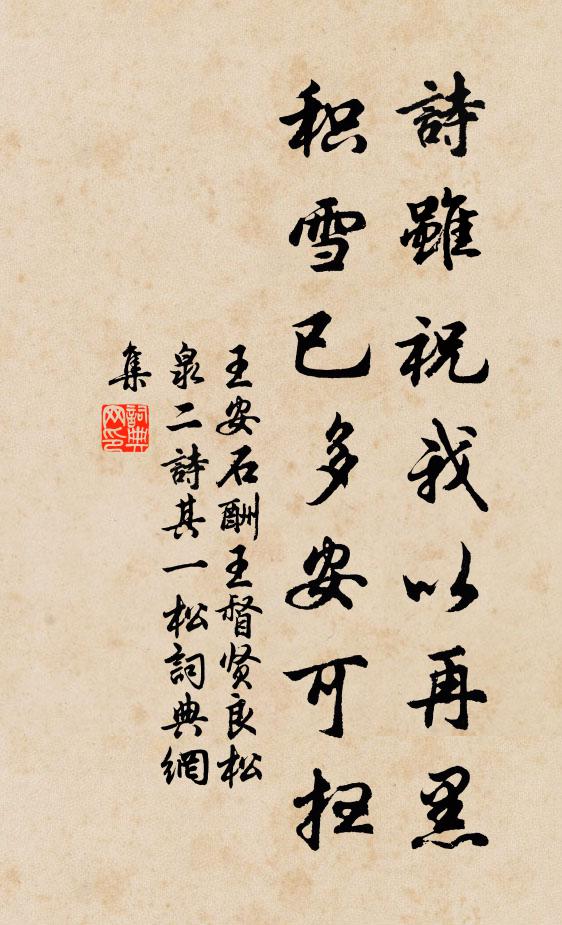 詩雖祝我以再黑
积雪已多安可扫
王安石酬王督贤良松
泉二詩其一松詞典網
集
詞典网印